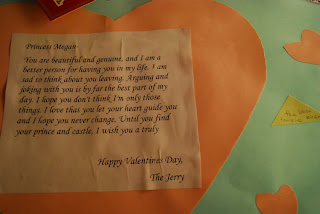 Princess Megan-
You are beautiful and genuine, and I am a
better person for having you in my life. I am
sad to think about you leaving. Arguing and
joking with you is by far the best part of my
day. I hope you don't think I'm only those
things. I love that you let your heart guide you
and I hope you never change. Until you find
your prince and castle, I wish you a truly
Happy Valentines Day,
The Jerry